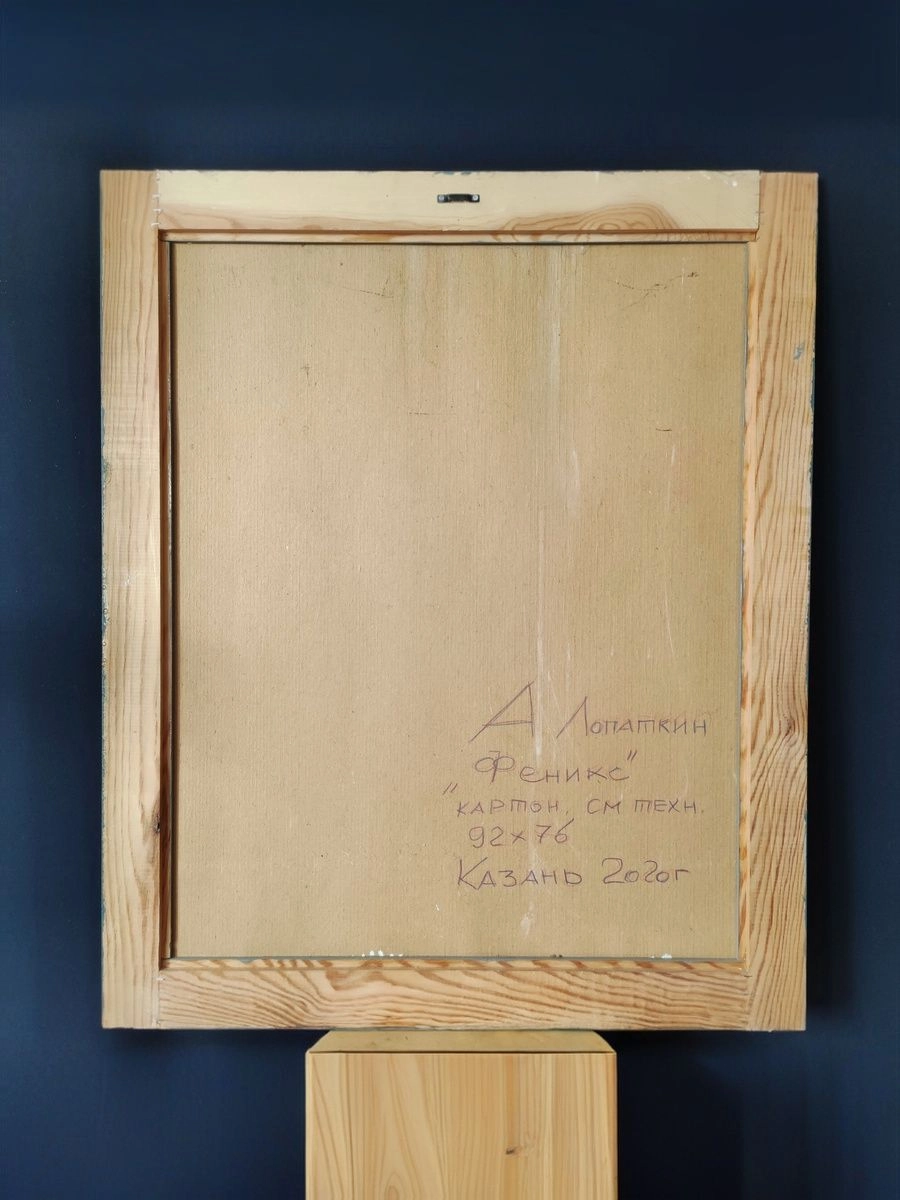 А Лопаткин
"Феникс"
картон, см техн.
92х76
Казань 2020г